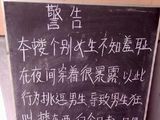 警告
本楼个别女生不知羞耻
在夜间穿着很暴露以此
行为挑逗男生导致男生狂
叫